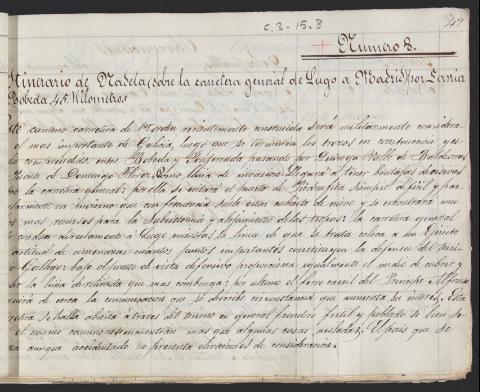 C. 3 - 15. 8
Numero 8.
Itinerario de Nadela (sobre la carretera general de Lugo a Madrid) por Sarria
Bobeda, 45 Kilometros
camino carretera de 1er orden recientemente construida será militarmente considera
el mas importante de Galicia, luego que se terminen los trozos en construccion y es
comprendido entre Bobeda y Ponferrada pasando por Quiroga Valle de Valdeorras
Puente de Domingo Florez; como linea de invasion llegará a tener ventajas decisivas
la carretera general: por ella se evitará el puerto de Piedrafita siempre dificil y par
en invierno que con frecuencia suele estar cubierto de nieve y se encontrará me
mas recursos para la subsistencia y alojamiento de las tropas: la carretera general
conduce directamente a Lugo mientras la linea de que se trata coloca a un Ejercito
actitud de amenazar cuantos puntos importantes constituyen la defensa del terri
Gallego: bajo el punto de vista defensivo proporciona igualmente el medio de cubrir y
la linea de retirada que mas convenga: por ultimo el ferro carril del Principe Alfonso
de cerca la comunicacion que se describe circunstancia que aumenta su interes. Esta
se halla abierta a traves del terreno en general frondoso fertil y poblado si bien so
el mismo camino se encuentran mas que algunas casas aisladas. El pais que se
aunque accidentado no presenta elevaciones de consideracion.